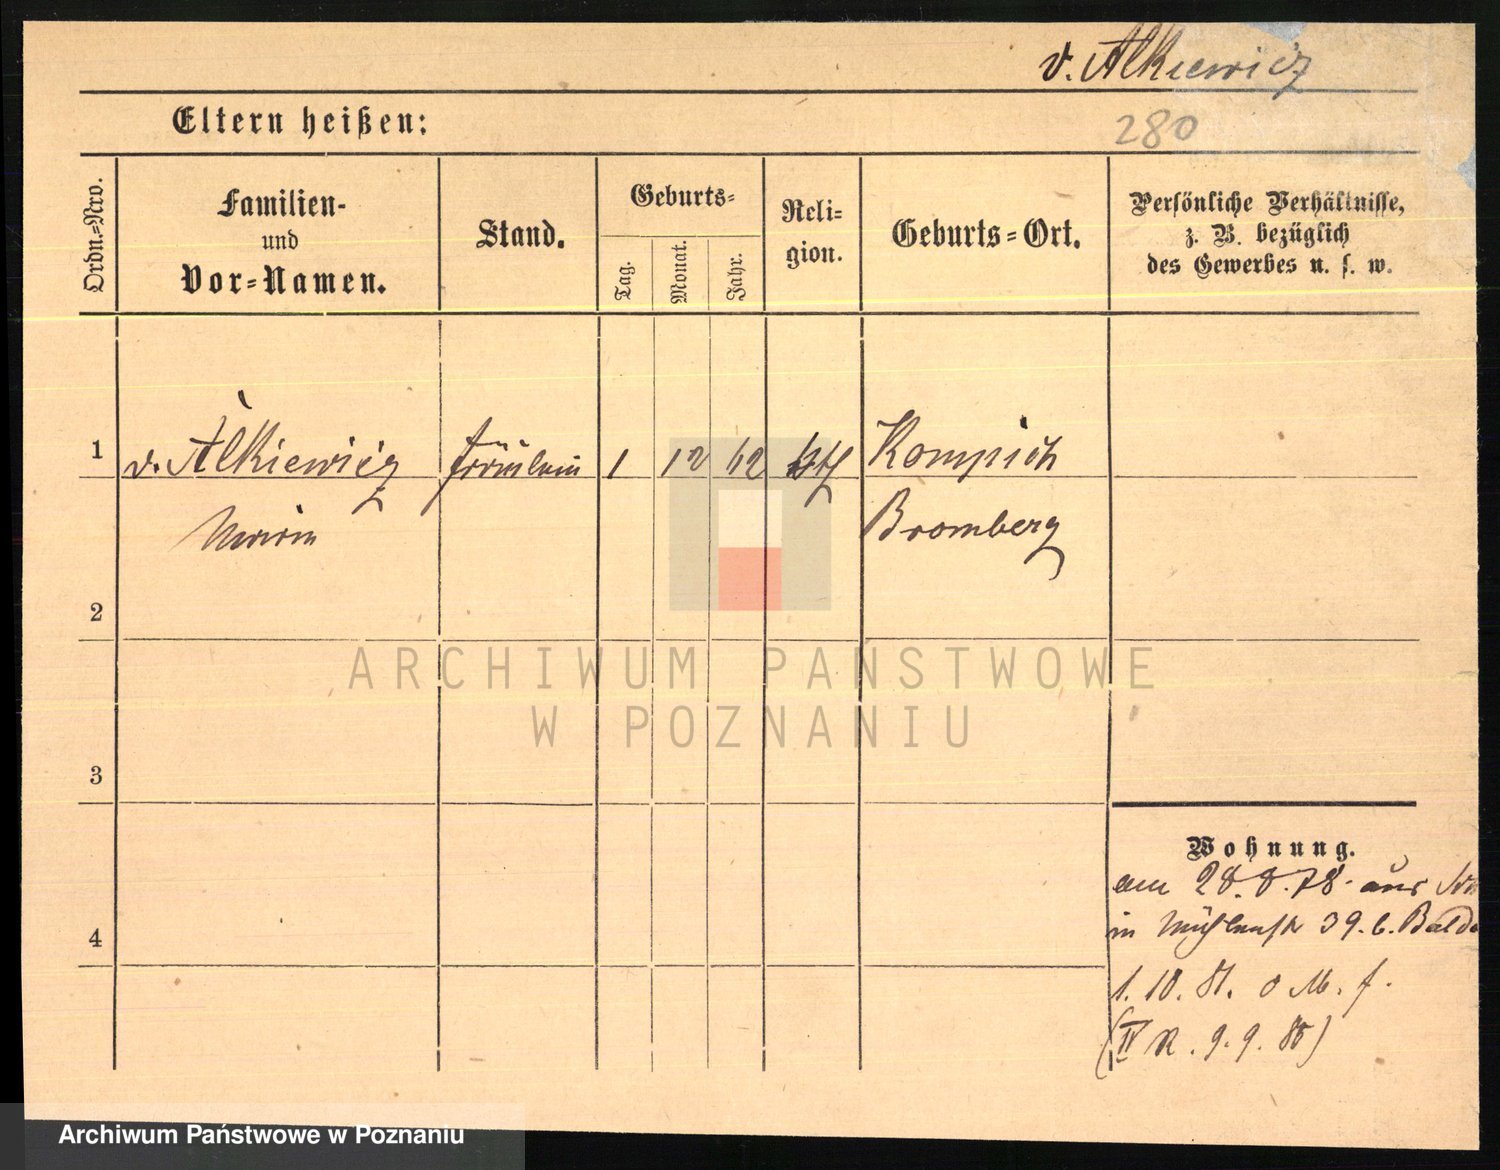 v. Alkiewicz
Eltern heißen:
280
Ordn.-Nro.
Familien-
und
Vor-Namen.
Stand.
Geburts-
Tag.
Monat.
Jahr.
Reli-
gion.
Geburts-Ort.
Persönliche Verhältnisse,
z. B. bezüglich
des Gewerbes u. s. w.
1 v. Alkiewicz Fräulein 1 12 kth
Bromberg
2
3
4
Wohnung.
am 28.8.78. aus
in Mühlenstr 39. b.
1. 10. 81. o M. f.
(IV R. 9. 9. 85)
ARCHIWUM PAŃSTWOWE
W POZNANIU
Archiwum Państwowe w Poznaniu